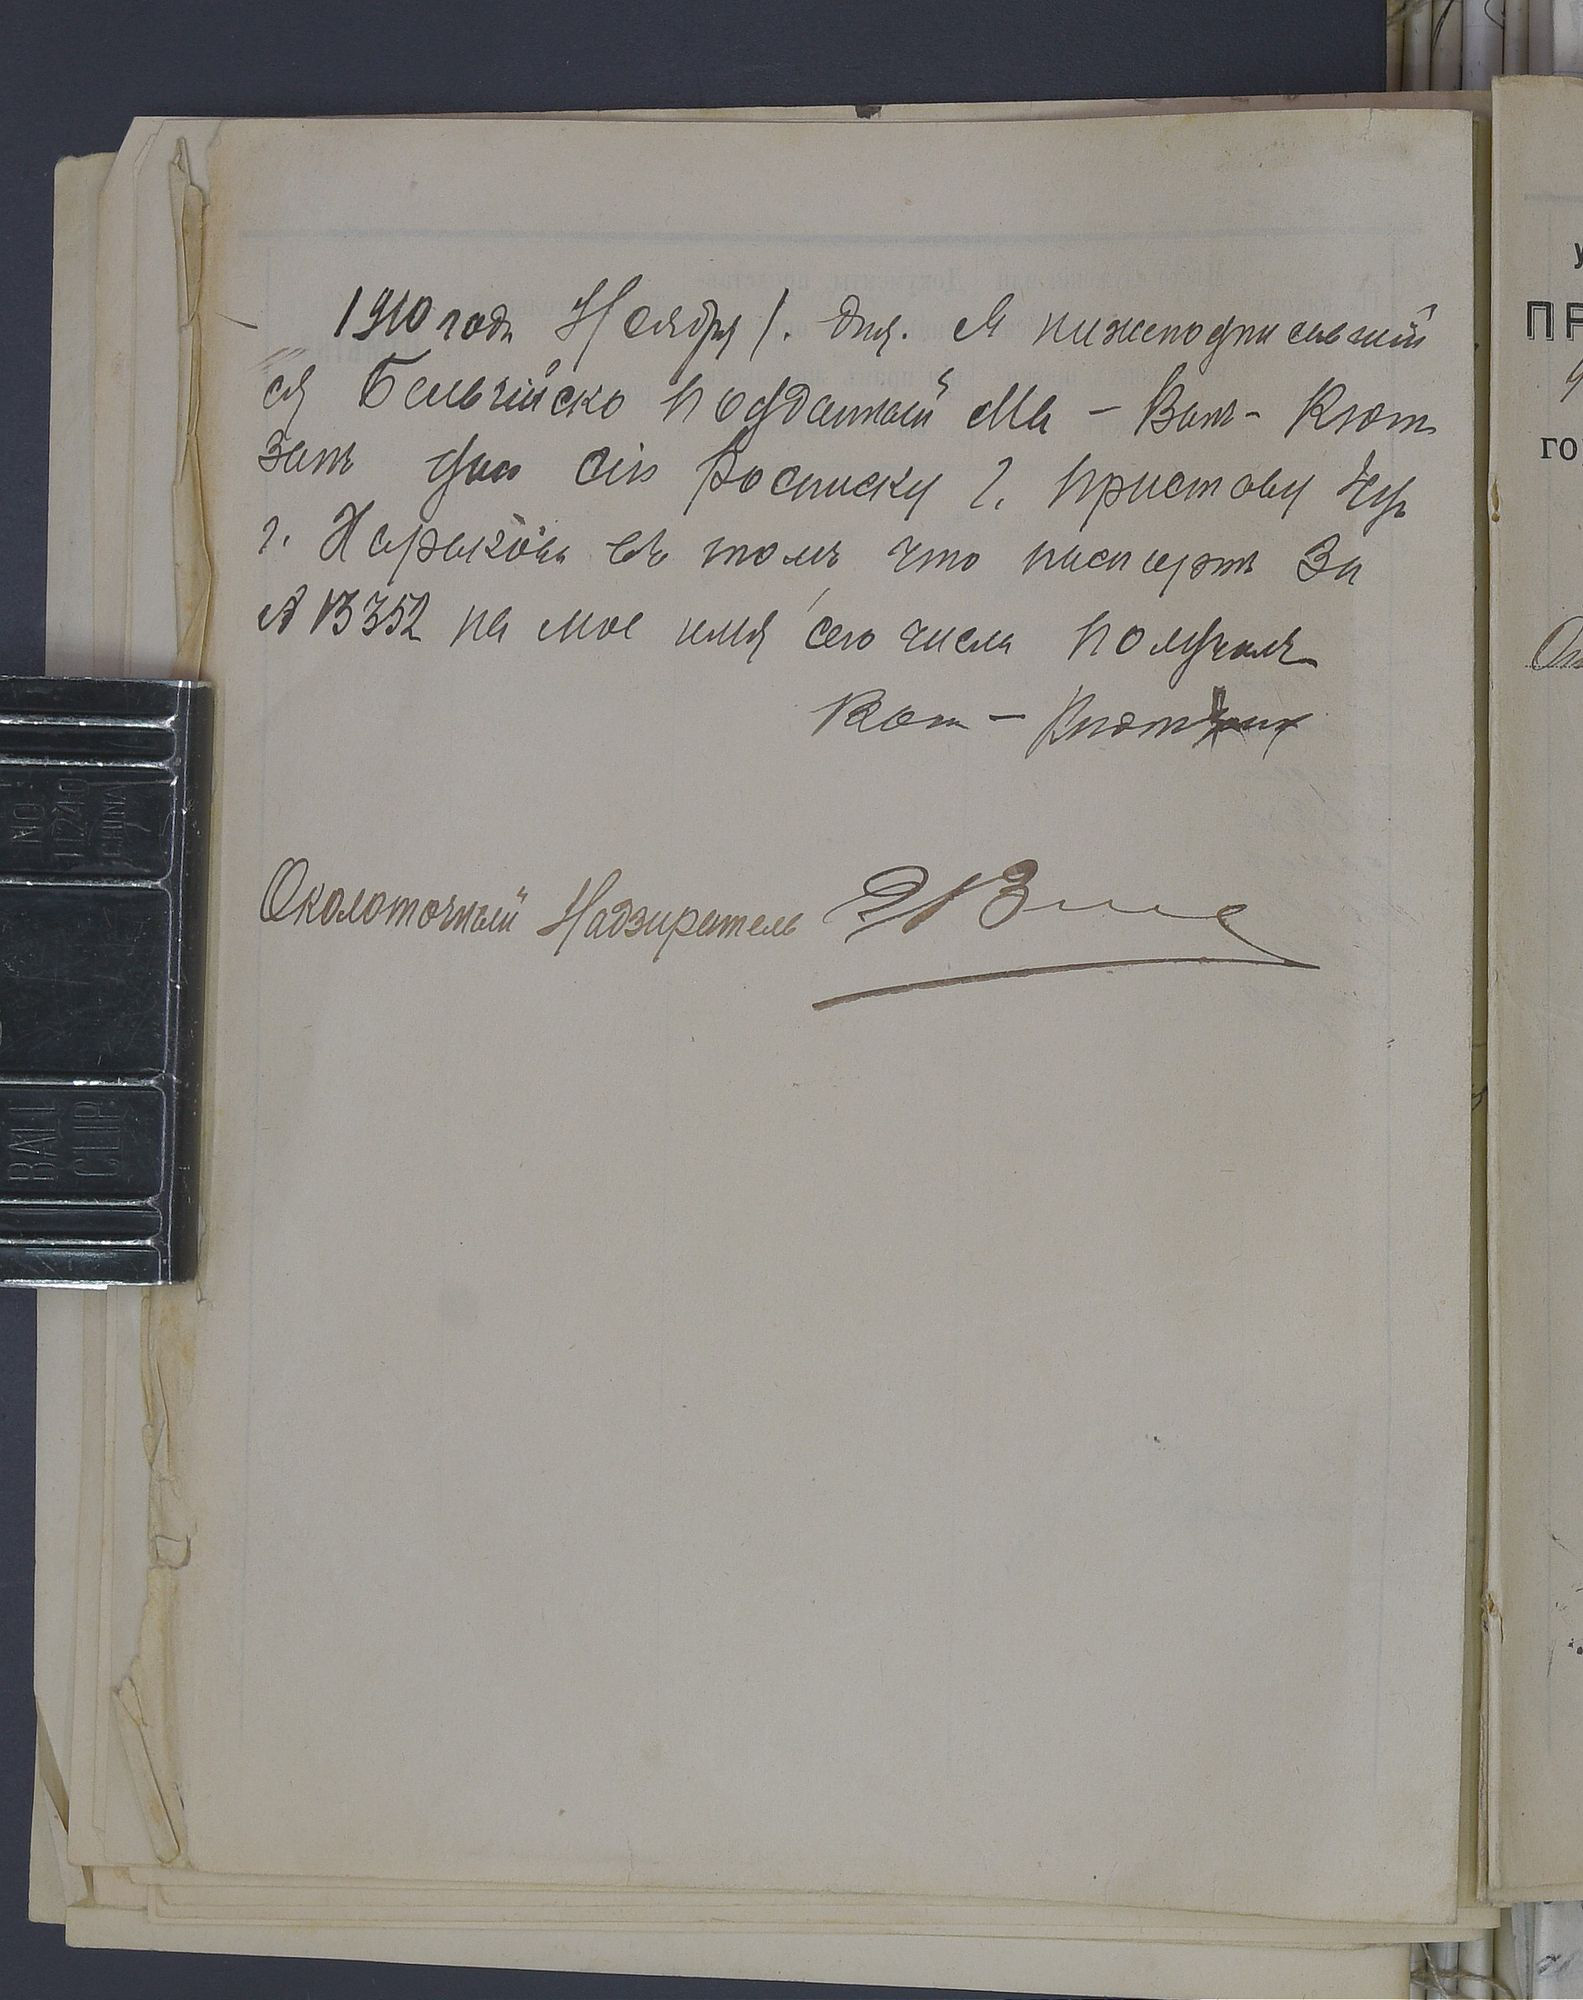 1910 года Ноября 1. дня. Я нижеподписавшій
ся Бельгійско подданный Ма - Ван - Кют
земъ даю сію росписку г. приставу
г. Харькова въ томъ что паспортъ за
№ 13352 на мое имя сего числа получилъ
Ван - Кют
Околоточный Надзиратель
ПР
го
BALL
CLIP